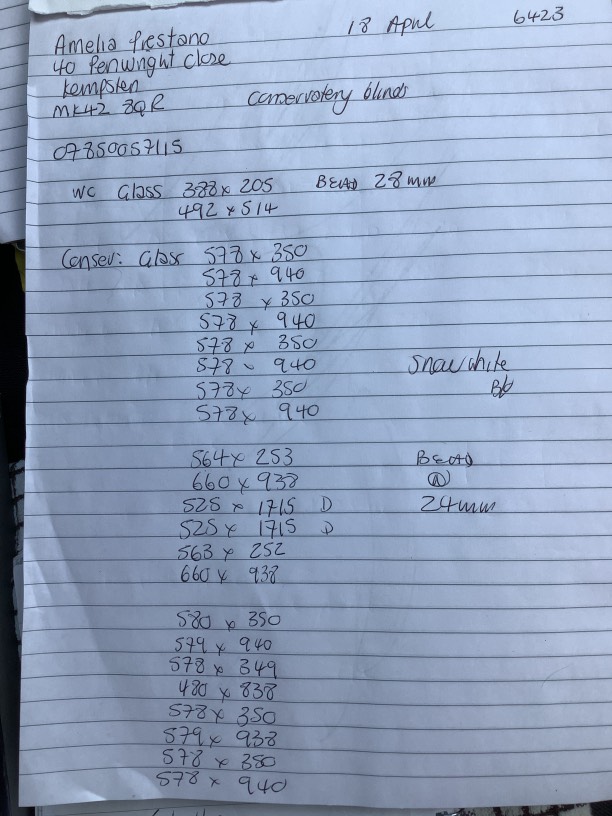 18 April 6423
Amelia Prestano
40 Penwright Close
Kempston
MK42 8QR conservatory blinds
07850057115
WC Glass 388 x 205 BEAD 28mm
492 x 514
Conserv: Glass 578 x 350
578 x 940
578 x 350
578 x 940
578 x 350
578 x 940 Snow white
578 x 350
578 x 940
564 x 253 BEAD
660 x 938
525 x 1715 D 24mm
525 x 1715 D
563 x 252
660 x 938
580 x 350
579 x 940
578 x 349
480 x 838
578 x 350
579 x 938
578 x 350
578 x 940